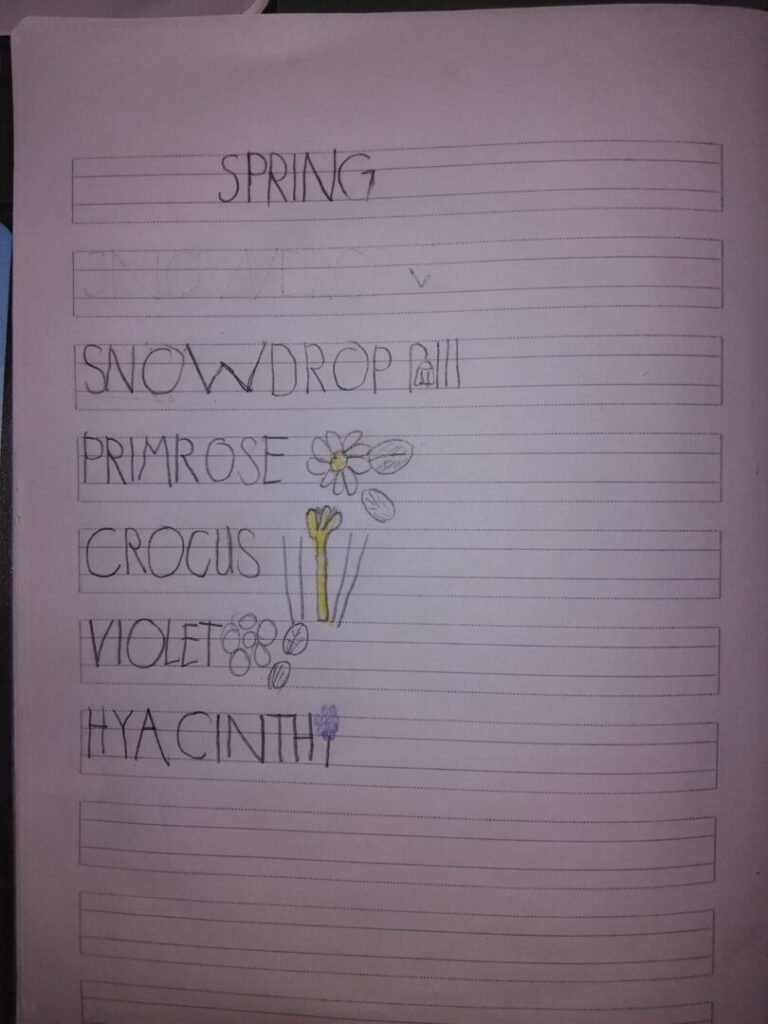 SPRING
SNOWDROP
SNOWDROP
PRIMROSE
CROCUS
VIOLET
HYACINTH